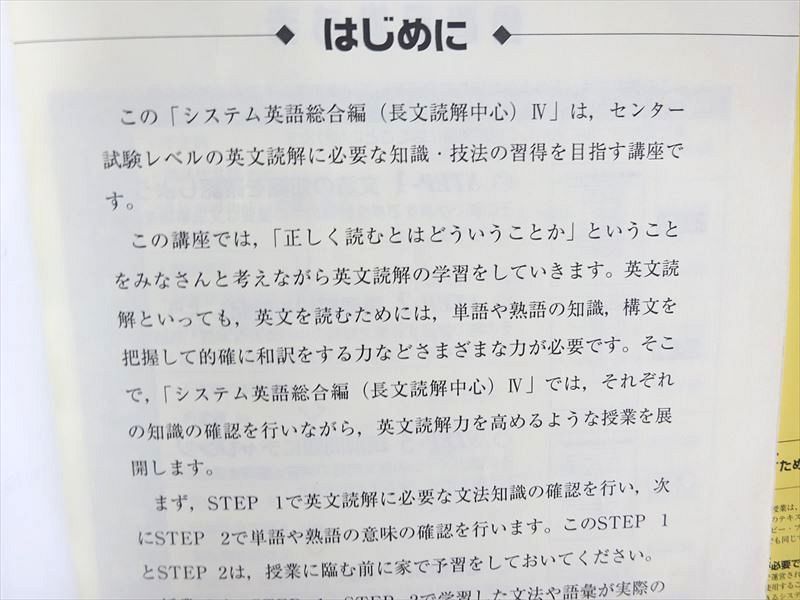 はじめに
この「システム英語総合編（長文読解中心）Ⅳ」は，センター
試験レベルの英文読解に必要な知識・技法の習得を目指す講座で
す。
この講座では，「正しく読むとはどういうことか」ということ
をみなさんと考えながら英文読解の学習をしていきます。英文読
解といっても，英文を読むためには，単語や熟語の知識，構文を
把握して的確に和訳をする力などさまざまな力が必要です。そこ
で，「システム英語総合編（長文読解中心）Ⅳ」では，それぞれ
の知識の確認を行いながら，英文読解力を高めるような授業を展
開します。
まず，STEP 1で英文読解に必要な文法知識の確認を行い，次
にSTEP 2で単語や熟語の意味の確認を行います。このSTEP 1
とSTEP 2は，授業に臨む前に家で予習をしておいてください。
STEP 1，STEP 2で学習した文法や語彙が実際の
ため
授業は，
のテキス
必要で